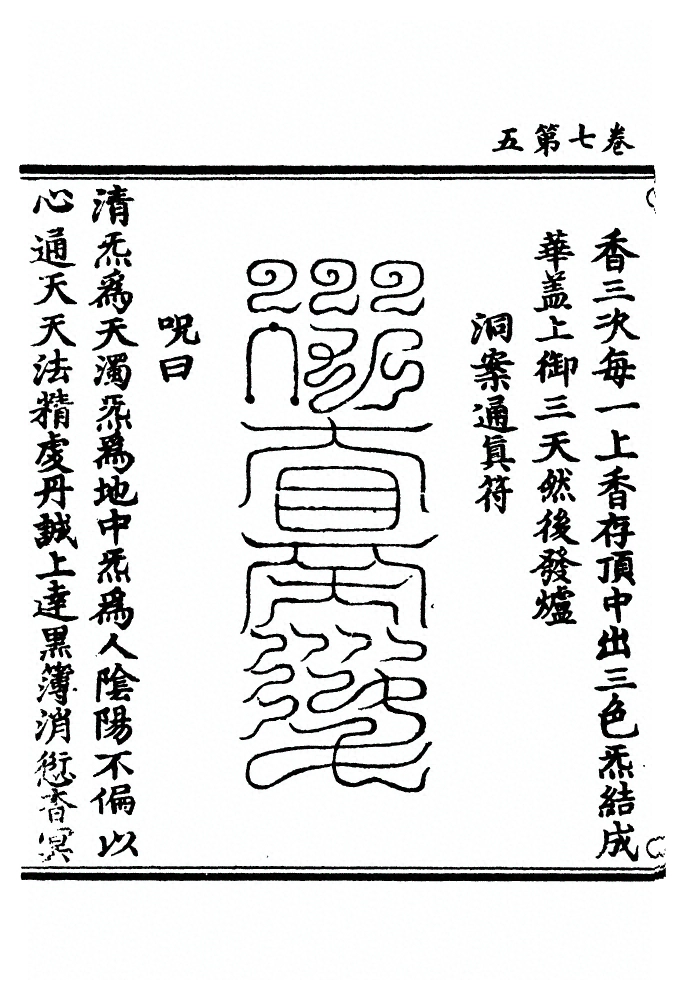 五第七卷
香三次每一上香存頂中出三色炁結成
華盖上御三天然後發爐
洞案通眞符
呪曰
清炁爲天濁炁爲地中炁爲人陰陽不偏以
心通天天法精虔丹誠上達黑簿消愆香冥